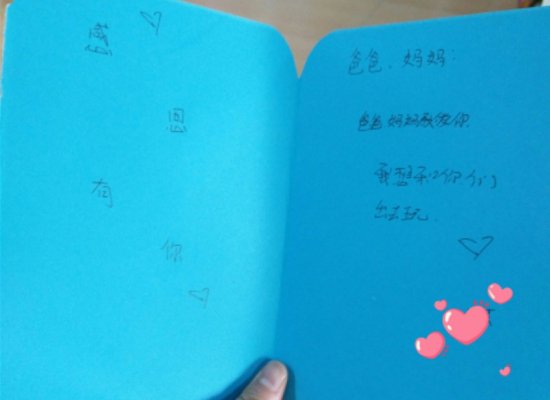 感
恩
有
你
爸爸、妈妈:
爸爸妈妈我爱你
我想和你们
出去玩